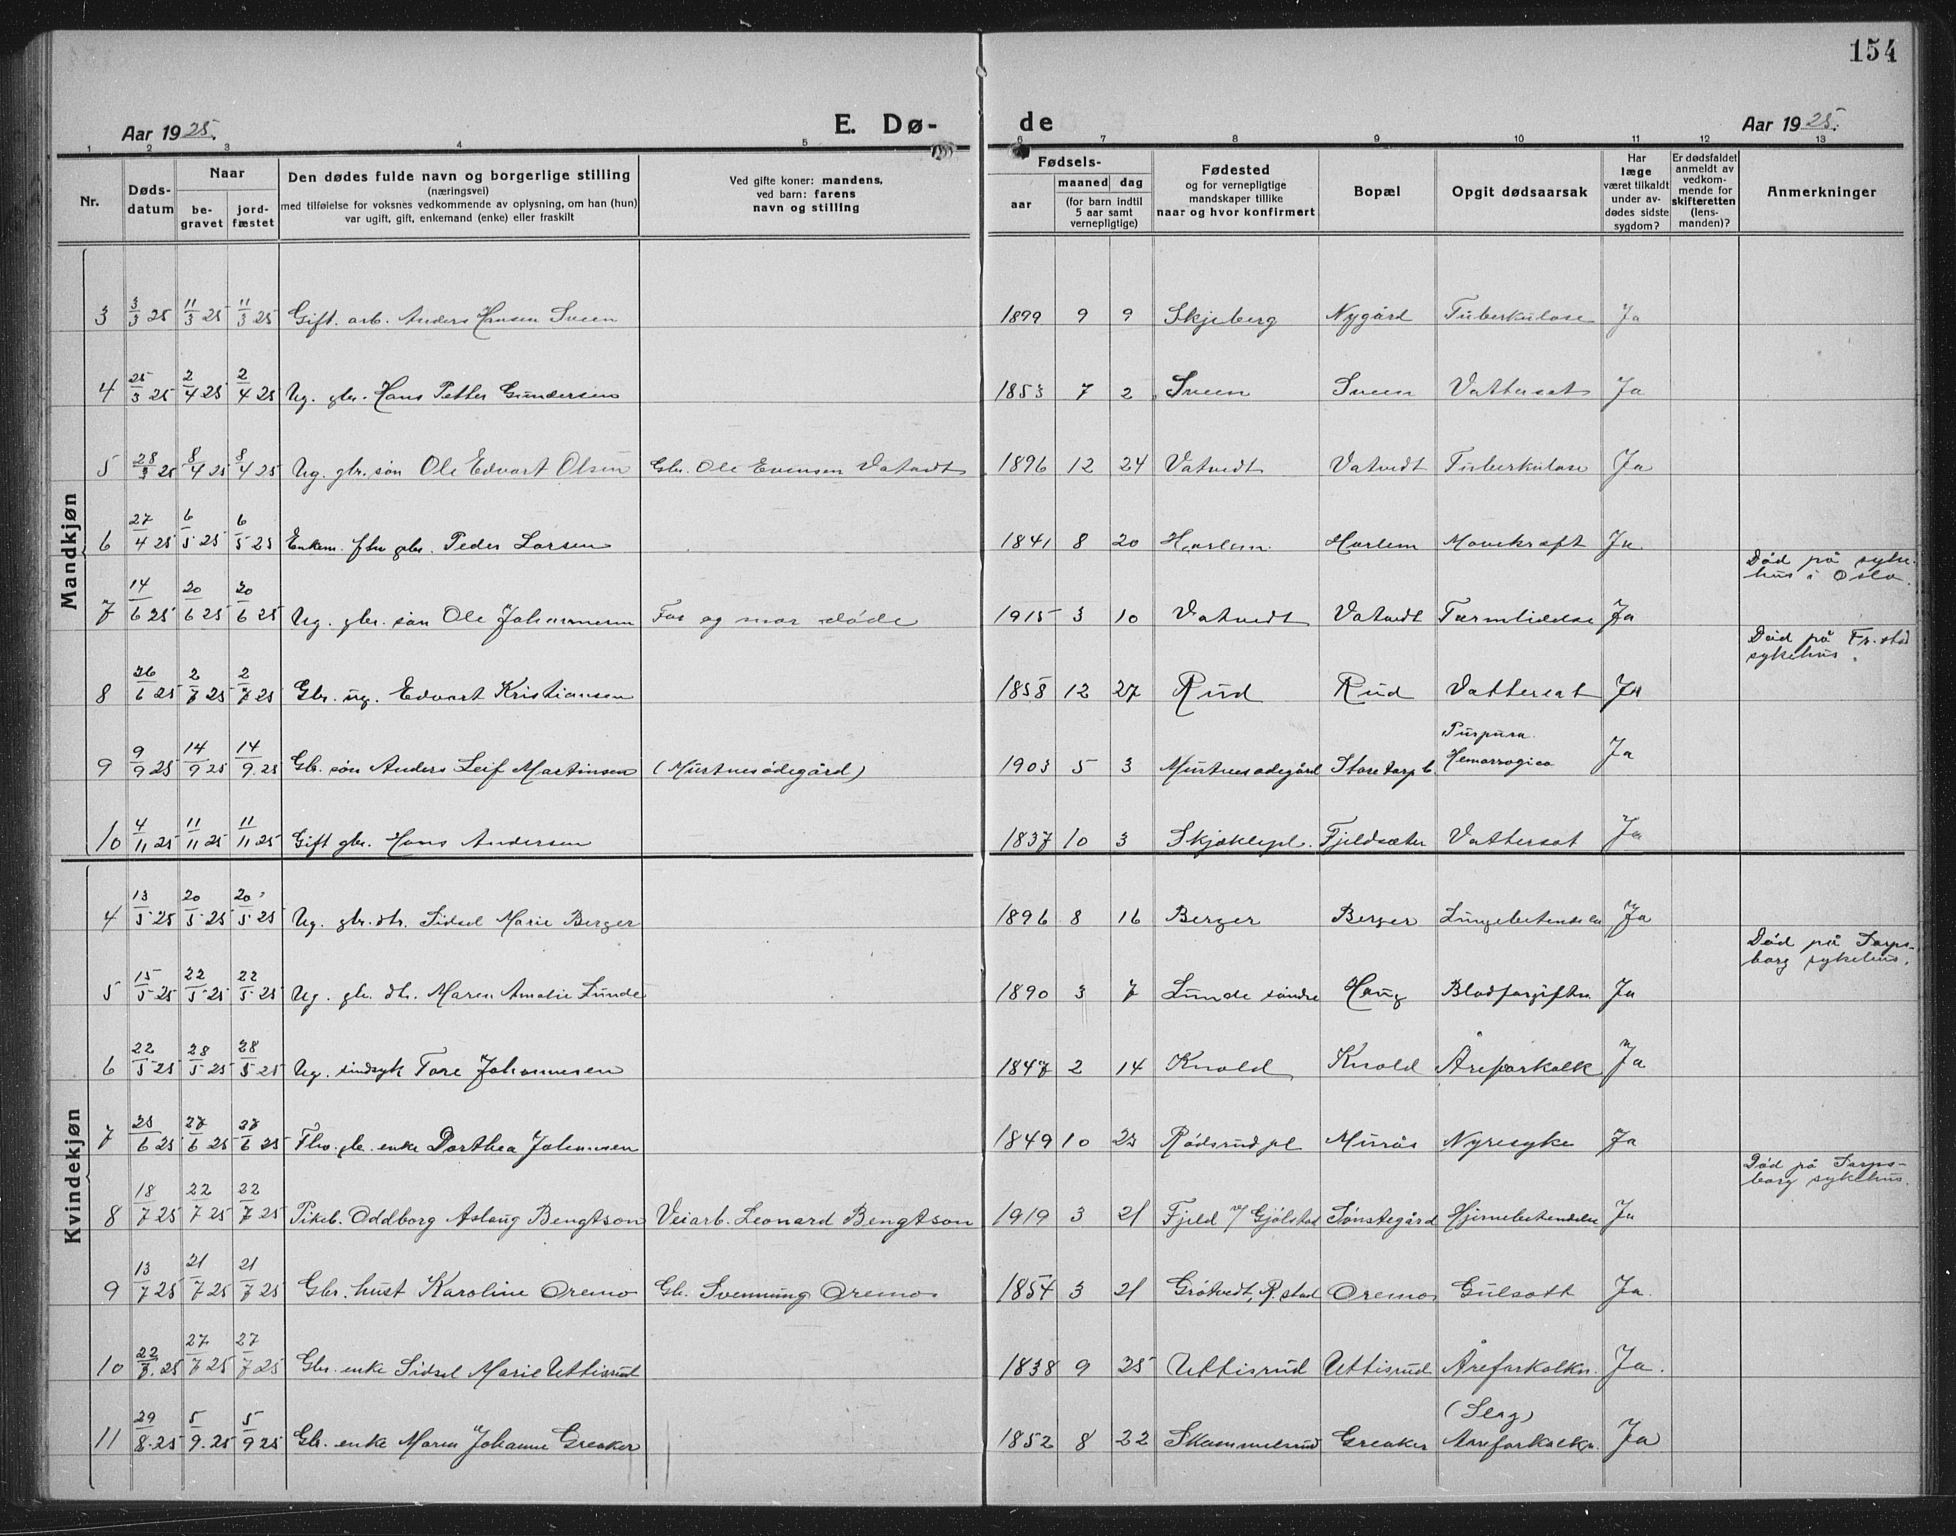 154
Aar 1925. E. Dø- de Aar 1925.
1 2 3 4 5 6 7 8 9 10 11 12 13
Nr. Døds-datum Naar be-gravet jord-fæstet Den dødes fulde navn og borgerlige stilling (næringsvei) med tilføielse for voksnes vedkommende av oplysning, om han (hun) var ugift, gift, enkemand (enke) eller fraskilt Ved gifte koner: mandens, ved barn: farens navn og stilling Fødsels- aar maaned dag (for barn indtil 5 aar samt vernepligtige) Fødested og for vernepligtige mandskaper tillike naar og hvor konfirmert Bopæl Opgit dødsaarsak Har læge været tilkaldt under av-dødes sidste sygdom? Er dødsfaldet anmeldt av vedkom-mende for skifteretten (lens-manden)? Anmerkninger
Mandkjøn
3 3/3 25 11/3 25 11/3 25 Gift. arb. Anders Hansen Sveen 1899 9 9 Skjeberg Nygård Tuberkulose Ja
4 25/3 25 2/4 25 2/4 25 Ug. gbr. Hans Petter Gundersen 1853 7 2 Sveen Sveen Vattersot Ja
5 28/3 25 8/4 25 8/4 25 Ug. gbr. søn Ole Edvart Olsen Gbr. Ole Evensen Vatvedt 1896 12 24 Vatvedt Vatvedt Tuberkulose Ja
6 27/4 25 6/5 25 6/5 25 Enkem. fhv gbr. Peder Larsen 1841 8 20 Harlem Harlem Mavekræft Ja
7 14/6 25 20/6 25 20/6 25 Ug. gbr. søn Ole Johannesen Far og mor døde 1915 3 10 Vatvedt Vatvedt Tarmlidelse Ja Død på syke-hus i Oslo.
8 26/6 25 2/7 25 2/7 25 Gbr. ug. Edvart Kristiansen 1858 12 27 Rud Rud Vattersot Ja Død på Fr.stad sykehus.
9 9/9 25 14/9 25 14/9 25 Gb. søn Anders Leif Martinsen (Murtnesødegård) 1903 5 3 Murtnesødegård Storetorp Purpura Hemorrogica Ja
10 4/11 25 11/11 25 11/11 25 Gift gbr. Hans Andersen 1837 10 3 Skjæklepl. Fjeldsæter Vattersot Ja
Kvindekjøn
4 13/5 25 20/5 25 20/5 25 Ug. gbr. dtr. Sidsel Marie Berger 1896 8 16 Berger Berger Lungebetendelse Ja
5 15/5 25 22/5 25 22/5 25 Ug. gbr. dtr. Maren Amalie Lunde 1890 3 7 Lunde søndre Haug Blodforgiftn. Ja Død på Sarps-borg sykehus.
6 22/5 25 28/5 25 28/5 25 Ug. sindsyk Tore Johannesen 1847 2 14 Knold Knold Åreforkalk Ja
7 25/6 25 27/6 25 27/6 25 Fhv. gb. enke Dorthea Johannesen 1849 10 23 Rødsrud pl Murås Nyresyke Ja
8 18/7 25 22/7 25 22/7 25 Pikeb. Oddborg Aslaug Bengtson Veiarb. Leonard Bengtson 1919 3 21 Fjeld v/ Gjølstad Tønstegård Hjernebetendelse Ja Død på Sarps-borg sykehus.
9 13/7 25 21/7 25 21/7 25 Gbr. hust Karoline Oremo Gb. Svennung Oremo 1854 3 21 Grøtvedt, R.stad Oremo Gulsott Ja.
10 22/7. 25 27/7 25 27/7 25 Gbr. enke Sidsel Marie Uttisrud 1838 9 25 Uttisrud Uttisrud Åreforkalkn. Ja.
11 29/8. 25 5/9. 25 5/9 25 Gb. enke Maren Johanne Greaker 1852 8 22 Skammelsrud Greaker Aareforkalkn. Ja